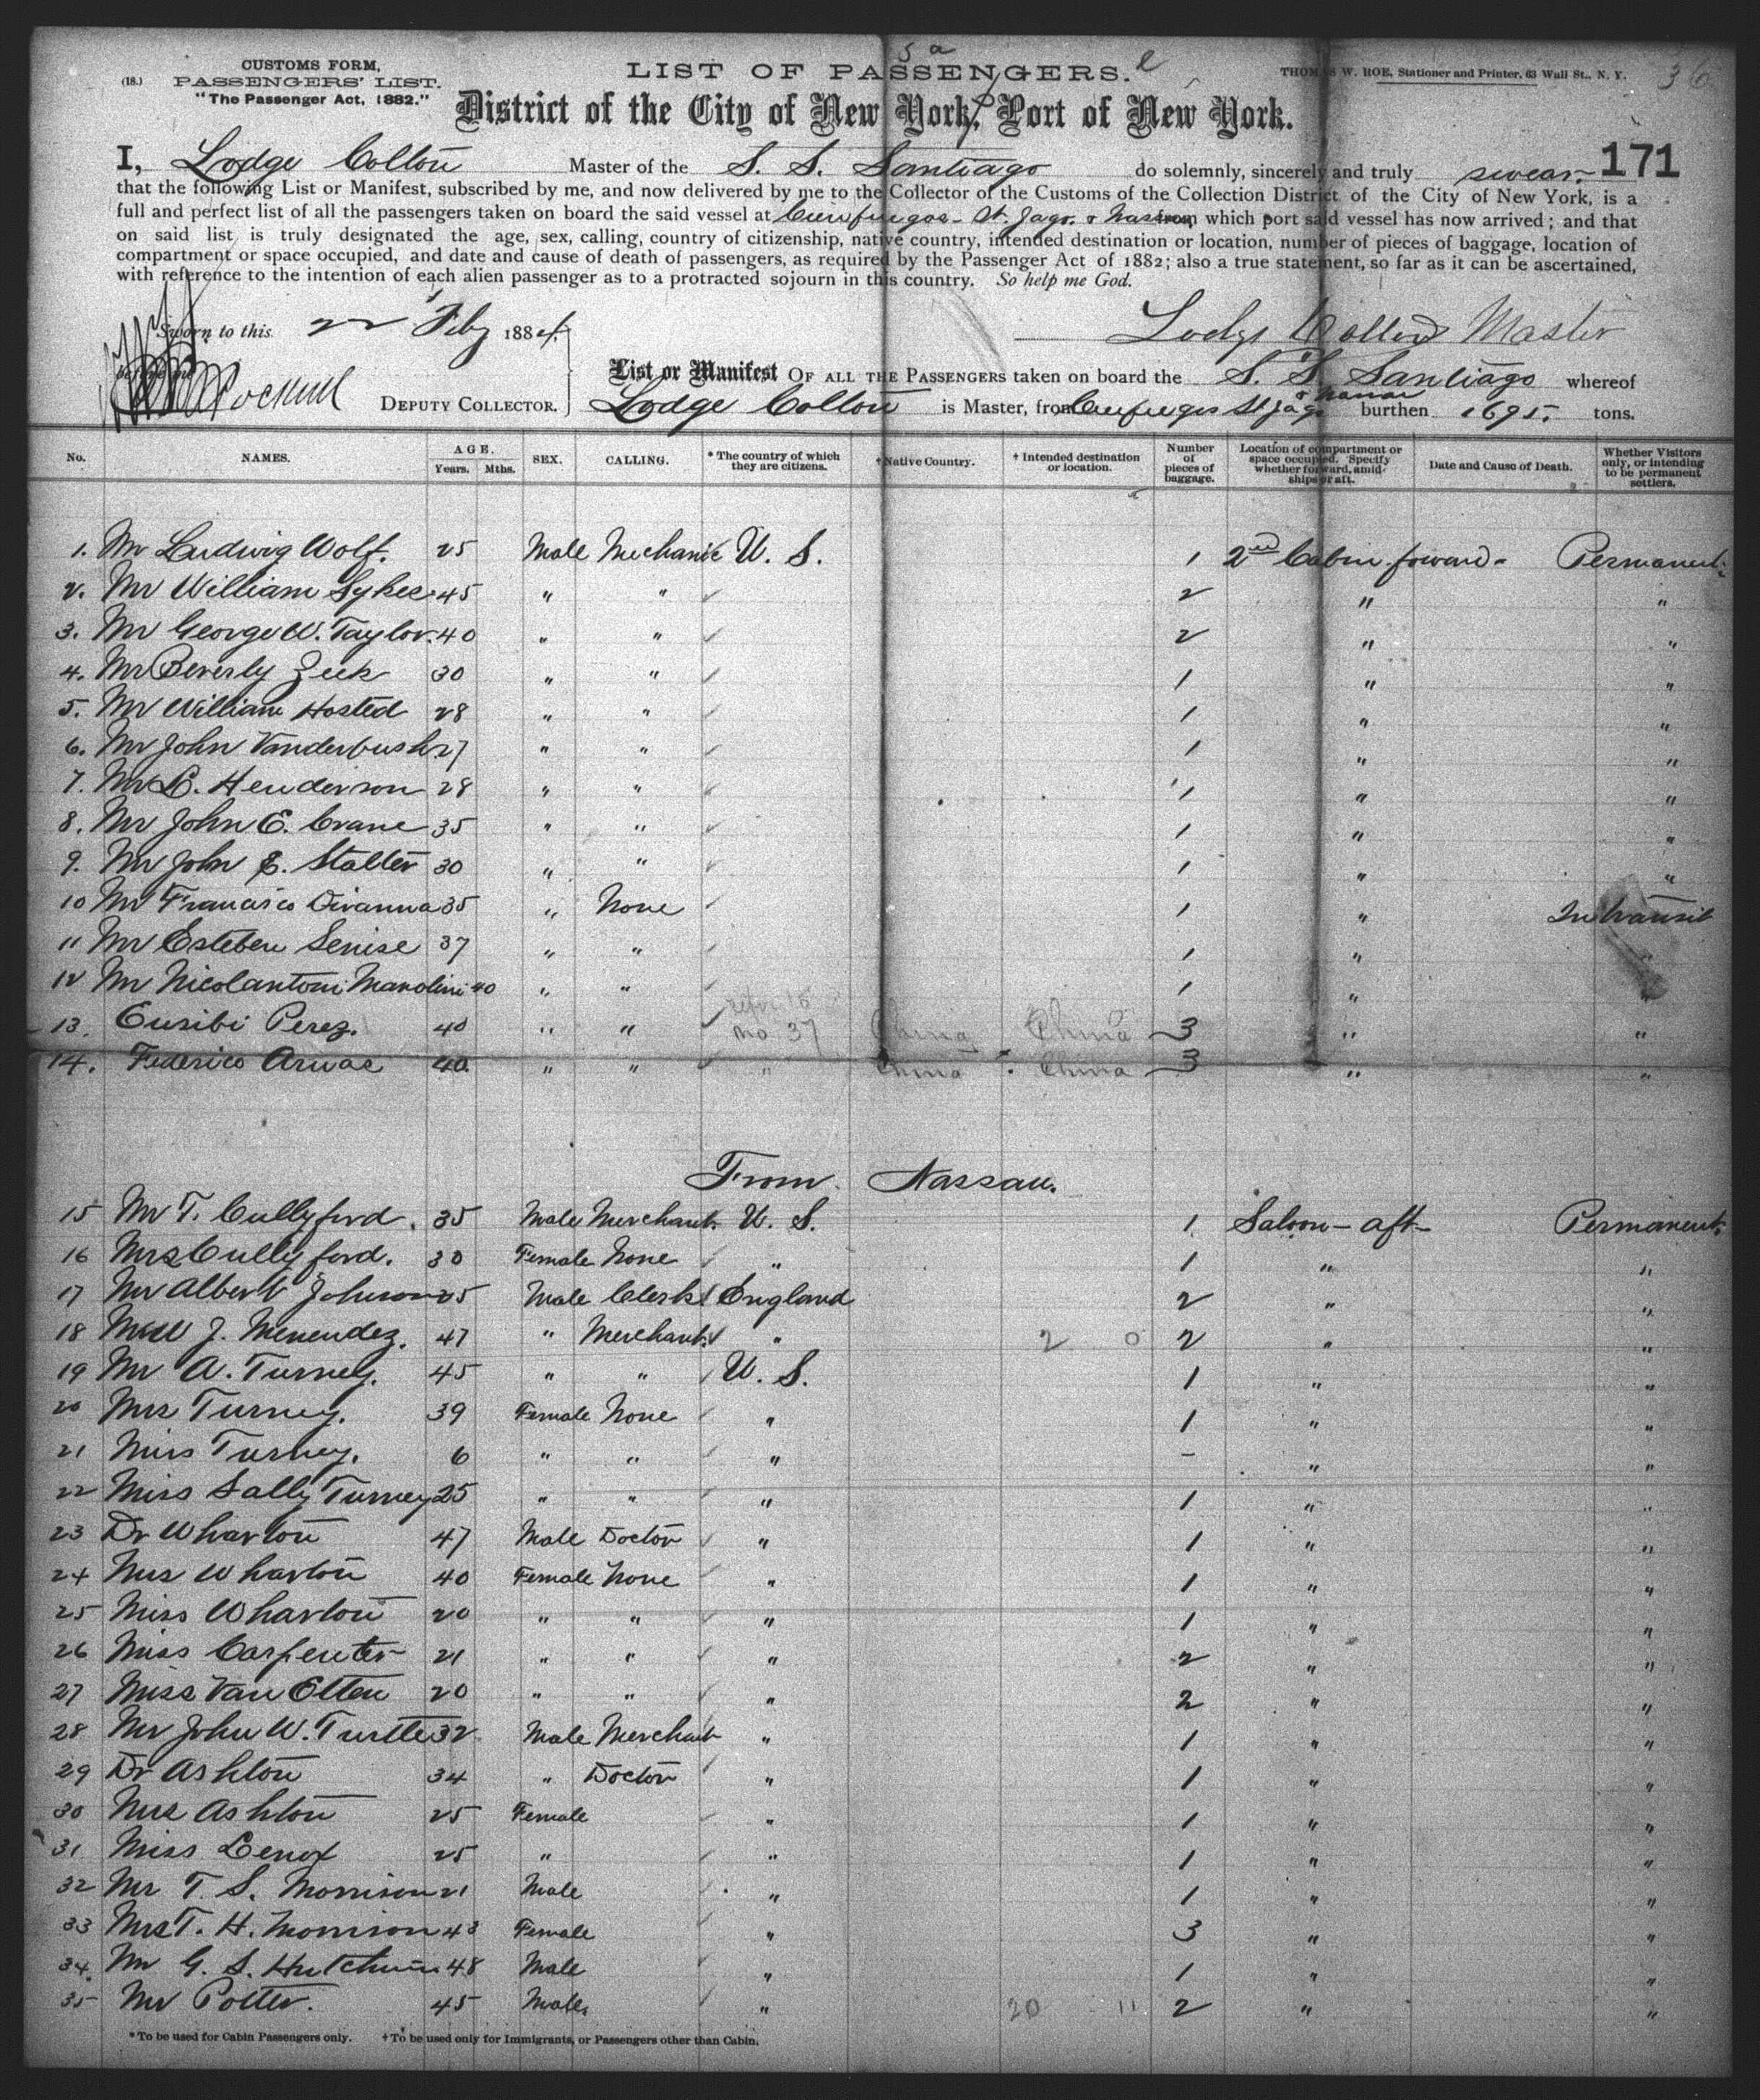 S a l
CUSTOMS FORM, LIST OF PASSENGERS. THOMAS W. ROE, Stationer and Printer, 63 Wall St., N. Y. 36
(18.) PASSENGERS' LIST.
"The Passenger Act, 1882." District of the City of New York, Port of New York.
I, Lodge Colton Master of the S. S. Santiago do solemnly, sincerely and truly swear 171
that the following List or Manifest, subscribed by me, and now delivered by me to the Collector of the Customs of the Collection District of the City of New York, is a
full and perfect list of all the passengers taken on board the said vessel at Cienfuegos - St. Jago & Nassau from which port said vessel has now arrived; and that
on said list is truly designated the age, sex, calling, country of citizenship, native country, intended destination or location, number of pieces of baggage, location of
compartment or space occupied, and date and cause of death of passengers, as required by the Passenger Act of 1882; also a true statement, so far as it can be ascertained,
with reference to the intention of each alien passenger as to a protracted sojourn in this country. So help me God.
Sworn to this 22 Feby 1884. Lodge Colton Master
DEPUTY COLLECTOR.
List or Manifest OF ALL THE PASSENGERS taken on board the S. S. Santiago whereof
Lodge Colton is Master, from Cienfuegos St Jago & Nassau burthen 1695. tons.
No. NAMES. AGE. Years. Mths. SEX. CALLING. * The country of which they are citizens. † Native Country. † Intended destination or location. Number of pieces of baggage. Location of compartment or space occupied. Specify whether forward, amidships or aft. Date and Cause of Death. Whether Visitors only, or intending to be permanent settlers.
1. Mr Ludwig Wolf. 25 Male Mechanic U. S. 1 2nd Cabin forward - Permanent
2. Mr William Sykes 45 " " 2 " "
3. Mr George W. Taylor. 40 " " 2 " "
4. Mr Beverly Zeek 30 " " 1 " "
5. Mr William Hosted 28 " " 1 " "
6. Mr John Vanderbush 27 " " 1 " "
7. Mr C. Henderson 28 " " 1 " "
8. Mr John E. Crane 35 " " 1 " "
9. Mr John E. Stalter 30 " " 1 " "
10 Mr Francisco Divanna 35 " None 1 " In transit
11 Mr Esteben Senise 37 " " 1 " "
12 Mr Nicolantoni Marolini 40 " " 1 " "
13. Eusibi Perez. 40 " " no 37 China China 3 " "
14. Federico Arnac 40 " " " China China 3 " "
From Nassau.
15 Mr T. Cullyford. 35 Male Merchant U. S. 1 Saloon - aft - Permanent
16 Mrs Cullyford. 30 Female None " 1 " "
17 Mr Albert Johnson 25 Male Clerk England 2 " "
18 J. Menendez. 47 " Merchant " 2 0 2 " "
19 Mr A. Turney. 45 " " U. S. 1 " "
20 Mrs Turney. 39 Female None " 1 " "
21 Miss Turney. 6 " " " - " "
22 Miss Sally Turney 25 " " " 1 " "
23 Dr Wharton 47 Male Doctor " 1 " "
24 Mrs Wharton 40 Female None " 1 " "
25 Miss Wharton 20 " " " 1 " "
26 Miss Carpenter 21 " " " 2 " "
27 Miss Van Etten 20 " " " 2 " "
28 Mr John W. Turtle 32 Male Merchant " 1 " "
29 Dr Ashton 34 " Doctor " 1 " "
30 Mrs Ashton 25 Female " 1 " "
31 Miss Lenox 25 " " 1 " "
32 Mr T. S. Morrison 21 Male " 1 " "
33 Mrs T. H. Morrison 43 Female " 3 " "
34. Mr G. S. Hutchins 48 Male " 1 " "
35 Mr Potter. 45 Male " 20 11 2 " "
* To be used for Cabin Passengers only. † To be used only for Immigrants, or Passengers other than Cabin.